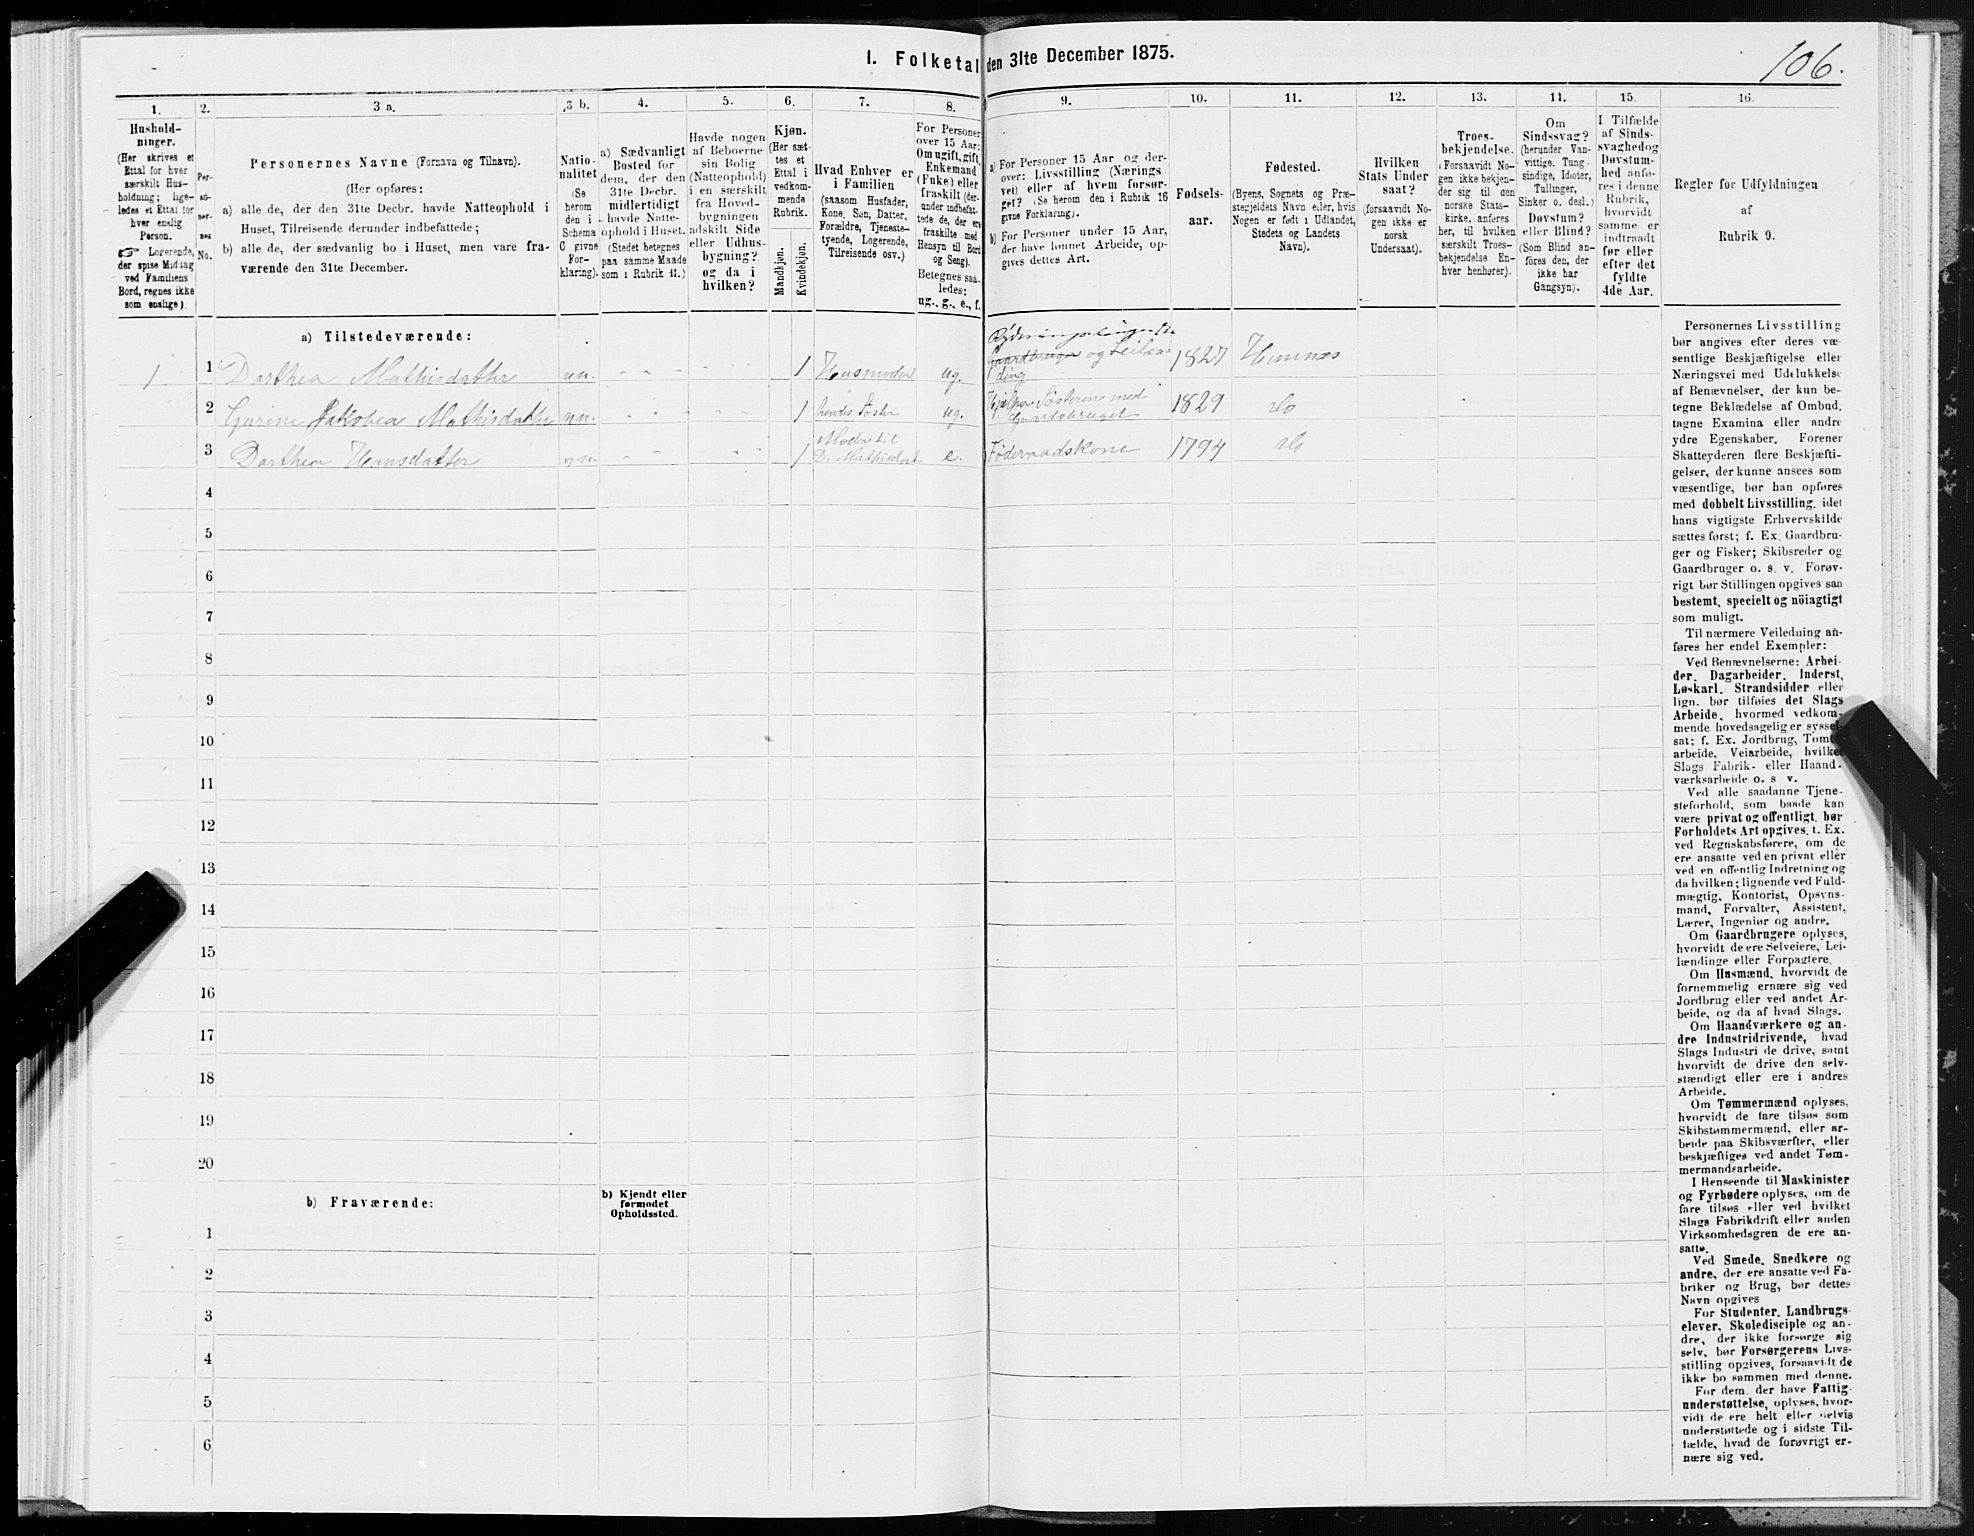 I. Folketal den 31te December 1875.
106.
1.
Hushold-
ninger.
(Her skrives et
Ettal for hver
særskilt Hus-
holdning; lige-
ledes et Ettal for
hver enslig
Person.
☞ Logerende,
der spise Middag
ved Familiens
Bord, regnes ikke
som enslige).
2.
Per-
so-
ner-
nes
No.
3 a.
Personernes Navne (Fornavn og Tilnavn).
(Her opføres:
a) alle de, der den 31te Decbr. havde Natteophold i
Huset, Tilreisende derunder indbefattede;
b) alle de, der sædvanlig bo i Huset, men vare fra-
værende den 31te December.
3 b.
Natio-
nalitet
(Se
herom
den i
Schema
C givne
For-
klaring).
4.
a) Sædvanligt
Bosted for
dem, der den
31te Decbr.
midlertidigt
havde Natte-
ophold i Huset.
(Stedet betegnes
paa samme Maade
som i Rubrik 11.)
5.
Havde nogen
af Beboerne
sin Bolig
(Natteophold)
i en særskilt
fra Hoved-
bygningen
adskilt Side
eller Udhus-
bygning?
og da i
hvilken?
6.
Kjøn.
(Her sæt-
tes et
Ettal i
vedkom-
mende
Rubrik.
Mandkjøn.
Kvindekjøn.
7.
Hvad Enhver er
i Familien
(saasom Husfader,
Kone, Søn, Datter,
Forældre, Tjeneste-
tyende, Logerende,
Tilreisende osv.)
8.
For Personer
over 15 Aar:
Om ugift, gift,
Enkemand
(Enke) eller
fraskilt (der-
under indbefat-
tede de, der ere
fraskilte med
Hensyn til Bord
og Seng).
Betegnes saa-
ledes:
ug., g., e., f.
9.
a) For Personer 15 Aar og der-
over: Livsstilling (Nærings
vei) eller af hvem forsør-
get? (Se herom den i Rubrik 16
givne Forklaring).
b) For Personer under 15 Aar,
der have lønnet Arbeide, op-
gives dettes Art.
10.
Fødsels-
aar.
11.
Fødested.
(Byens, Sognets og Præ-
stegjeldets Navn eller, hvis
Nogen er født i Udlandet,
Stedets og Landets
Navn).
12.
Hvilken
Stats Under
saat?
(forsaavidt No-
gen ikke er
norsk
Undersaat).
13.
Troes-
bekjendelse.
(Forsaavidt No-
gen ikke bekjen-
der sig til den
norske Stats-
kirke, anføres
her, til hvilken
særskilt Troes-
bekjendelse En-
hver henhører).
14.
Om
Sindssvag?
(herunder Van-
vittige, Tung-
sindige, Idioter,
Tullinger,
Sinker o. desl.)
Døvstum?
eller Blind?
(Som Blind an-
føres den, der
ikke har
Gangsyn).
15.
I Tilfælde
af Sinds-
svaghed og
Døvstum-
hed anfø-
res i denne
Rubrik,
hvorvidt
samme er
indtraadt
før eller
efter det
fyldte
4de Aar.
16.
Regler for Udfyldningen
af
Rubrik 9.
a) Tilstedeværende:
1 1 Dorthea Mathisdatter nn. - - - 1 Husmoder ug. Gaardbruger og Leilæn-ding 1827 Hemnæs
2 Gurine Jakobea Mathisdatter nn. - - - 1 hendes Søster ug. Hjelper Søsteren med Gaardsbruget 1829 do
3 Dorthea Hansdatter nn. - - - 1 Moder til D. Mathisdat e. Føderaadskone 1794 do
4
5
6
7
8
9
10
11
12
13
14
15
16
17
18
19
20
b) Fraværende:
b) Kjendt eller
formodet
Opholdssted.
1
2
3
4
5
6
Personernes Livsstilling
bør angives efter deres væ-
sentlige Beskjæftigelse eller
Næringsvei med Udelukkelse
af Benævnelser, der kun be-
tegne Beklædelse af Ombud,
tagne Examina eller andre
ydre Egenskaber. Forener
Skatteyderen flere Beskjæfti-
gelser, der kunne ansees som
væsentlige, bør han opføres
med dobbelt Livsstilling, idet
hans vigtigste Erhvervskilde
sættes først; f. Ex. Gaardbru-
ger og Fisker; Skibsreder og
Gaardbruger o. s. v. Forøv-
rigt bør Stillingen opgives saa
bestemt, specielt og nöiagtigt
som muligt.
Til nærmere Veiledning an-
føres her endel Exempler:
Ved Benævnelserne: Arbei-
der, Dagarbeider, Inderst,
Løskarl, Strandsidder eller
lign. bør tilføies det Slags
Arbeide, hvormed vedkom-
mende hovedsagelig er syssel-
sat; f. Ex. Jordbrug, Tomt-
arbeide, Veiarbeide, hvilket
Slags Fabrik- eller Haand-
værksarbeide o. s v.
Ved alle saadanne Tjene-
steforhold, som baade kan
være privat og offentligt, bør
Forholdets Art opgives, t. Ex.
ved Regnskabsførere, om de
ere ansatte ved en privat eller
ved en offentlig Indretning og
da hvilken; lignende ved Fuld-
mægtig, Kontorist, Opsyns-
mand, Forvalter, Assistent,
Lærer, Ingeniør og andre.
Om Gaardbrugere oplyses,
hvorvidt de ere Selveiere, Lei-
lændinge eller Forpagtere.
Om Husmænd, hvorvidt de
fornemmelig ernære sig ved
Jordbrug eller ved andet Ar-
beide, og da af hvad Slags.
Om Haandværkere og an-
dre Industridrivende, hvad
Slags Industri de drive, samt
hvorvidt de drive den selv-
stændigt eller ere i andres
Arbeide.
Om Tømmermænd oplyses,
hvorvidt de fare tilsøs som
Skibstømmermænd, eller ar-
beide paa Skibsværfter, eller
beskjæftiges ved andet Tøm-
mermandsarbeide.
I Henseende til Maskinister
og Fyrbødere oplyses, om de
fare tilsøs eller ved hvilket
Slags Fabrikdrift eller anden
Virksomhedsgren de ere an-
satte.
Ved Smede, Snedkere og
andre, der ere ansatte ved Fa-
briker og Brug, bør dettes
Navn opgives
For Studenter, Landbrugs-
elever, Skoledisciple og an-
dre, der ikke forsørge sig
selv, bør Forsørgerens Livs-
stilling opgives, forsaavidt de
ikke bo sammen med denne.
For dem, der have Fattig-
understøttelse, oplyses, hvor-
vidt de ere helt eller delvis
understøttede og i sidste Til-
fælde, hvad de forøvrigt er-
nære sig ved.